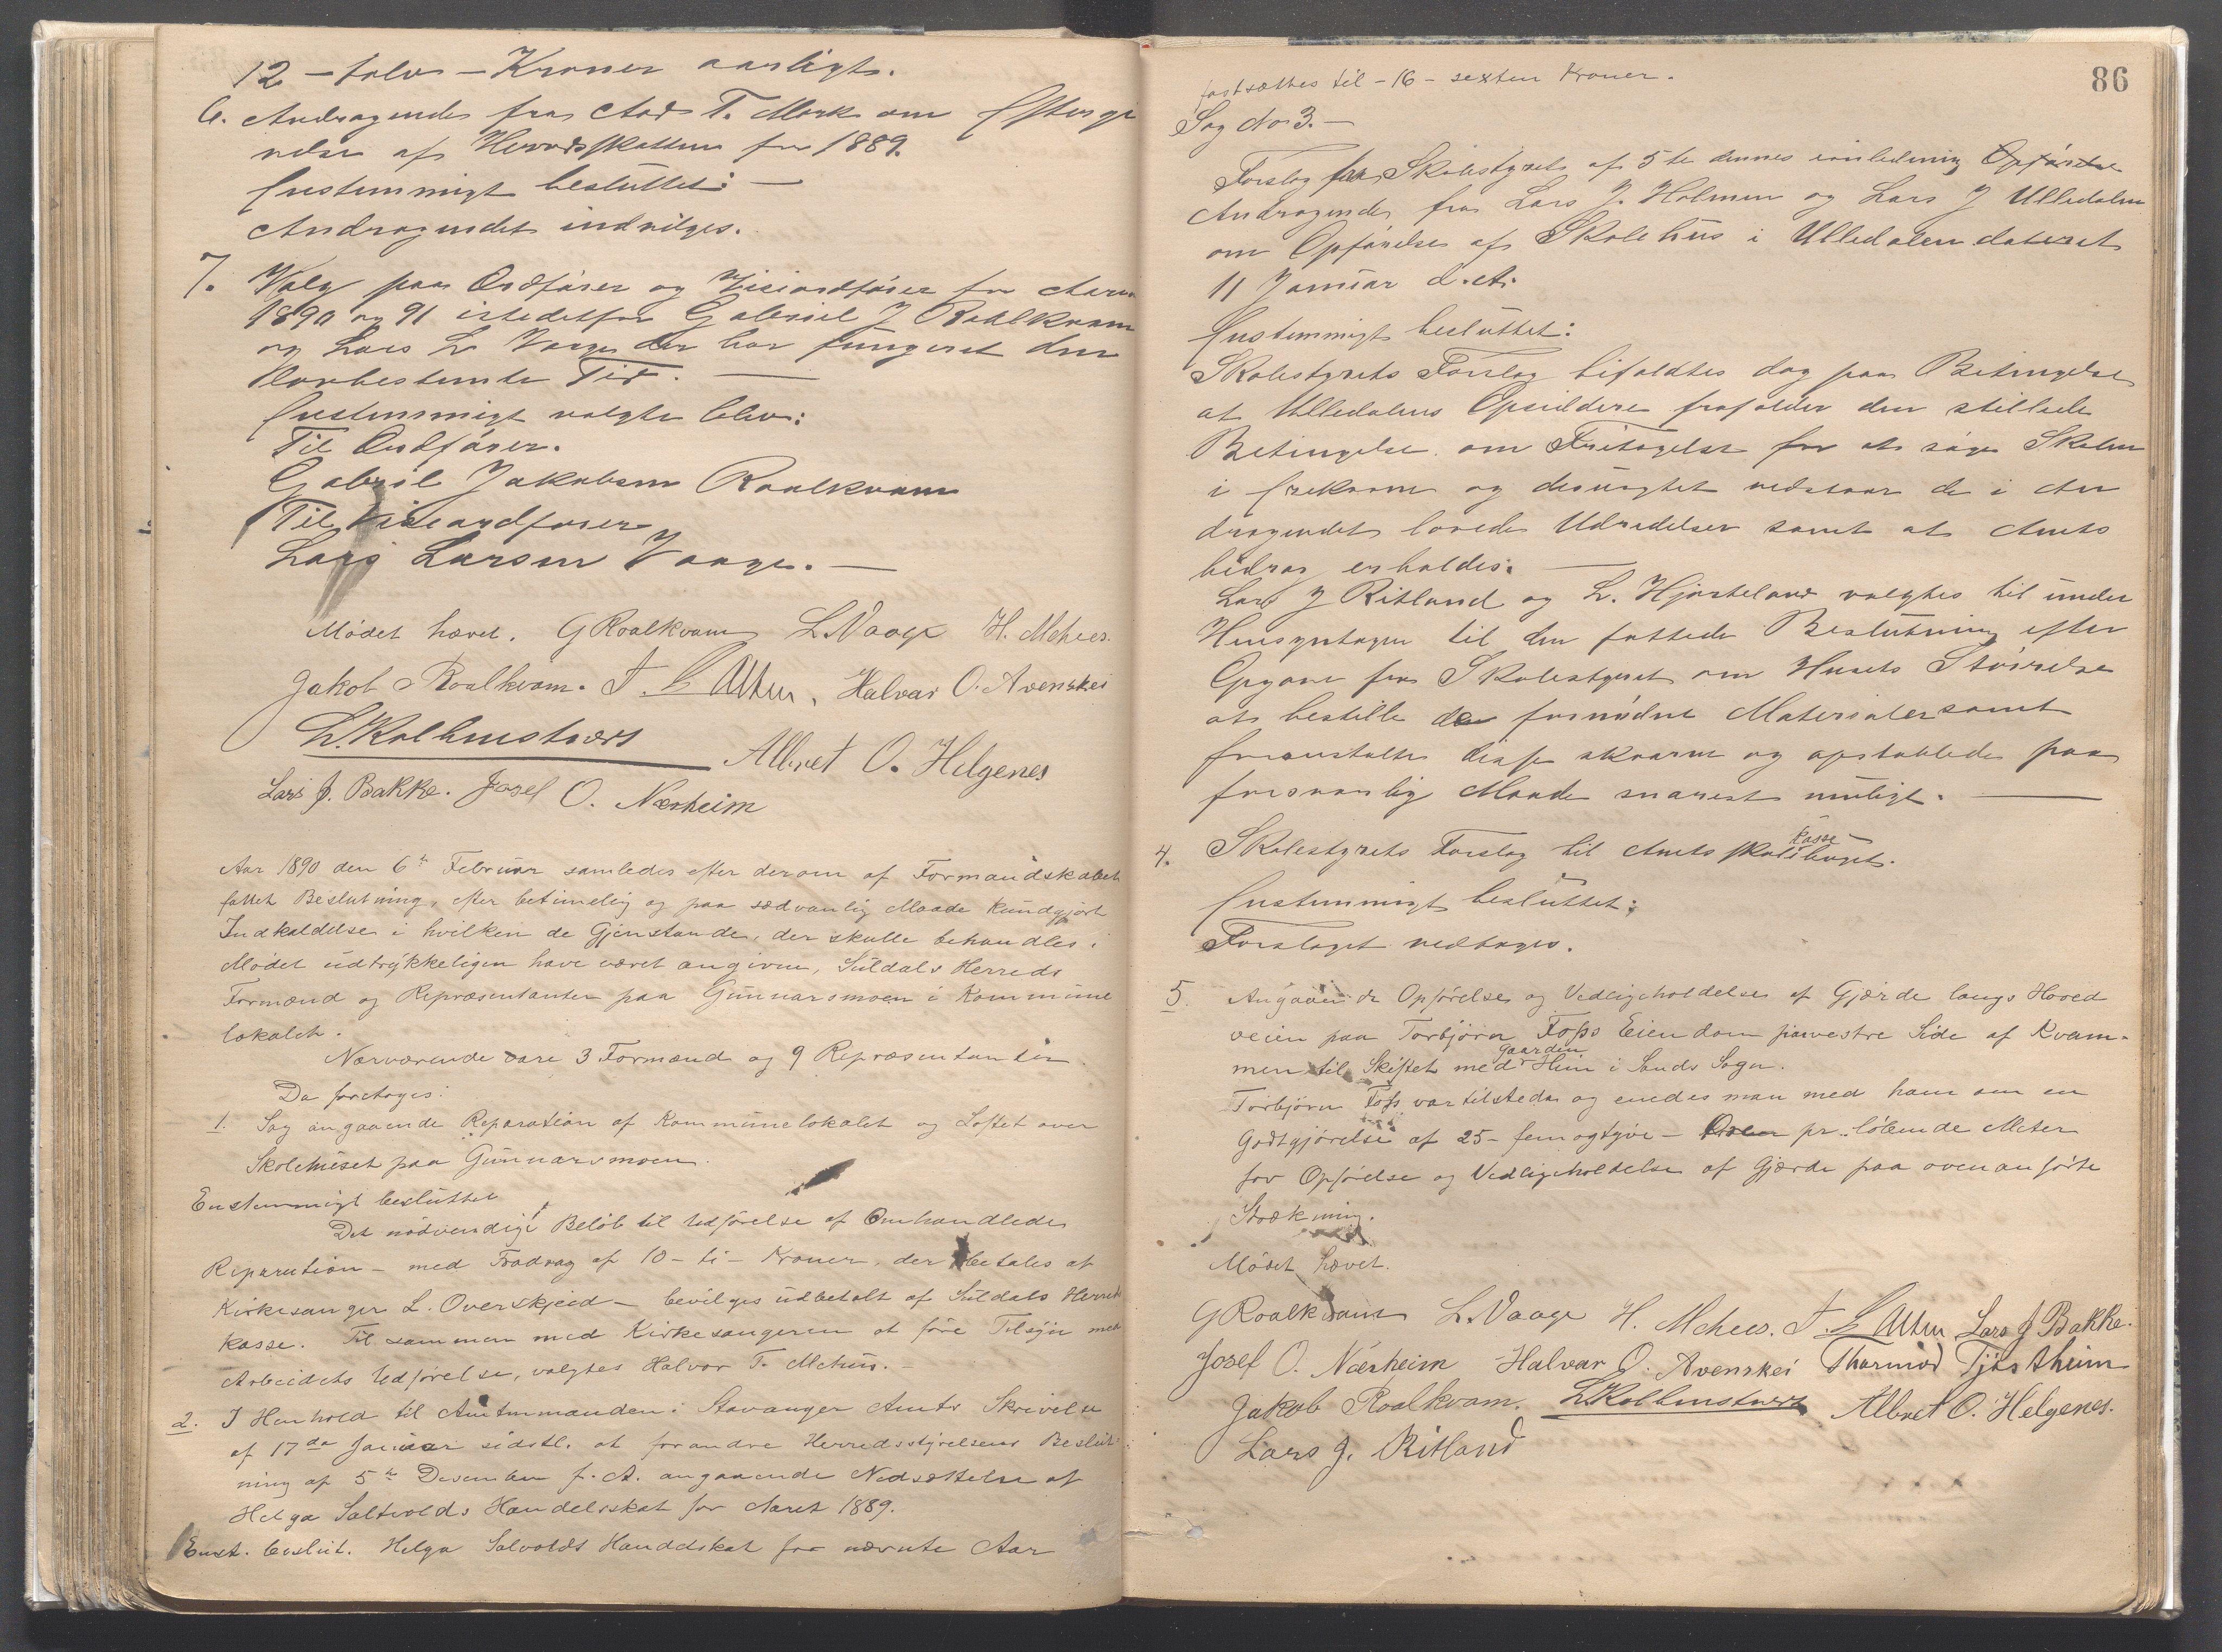 12 – tolv – Kroner aarligt.
6. Andragende fra Aad T. Mork om Eftergi
velse af Herredsskatten for 1889.
Enstemmigt besluttet: —
Andragendet indvilges.
7. Valg paa Ordfører og Viseordfører for Aarene
1890 og 91 istedetfor Gabriel J Roalkvam
og Lars L Vaage der har fungeret den
lovbestemte Tid. —
Enstemmigt valgte blev:
Til Ordfører.
Gabriel Jakobsen Roalkvam
Til Viseordfører
Lars Larsen Vaage. —
Mødet hævet. G Roalkvam L. Vaage H. Mehus.
Jakob Roalkvam. Halvar O. Avenskei
L. Kolbenstvedt
Albret O. Helgenes
Lars J. Bakke. Josef O. Nærheim
Aar 1890 den 6te Februar samledes efter derom af Formandskabet
fattet Beslutning, efter betimelig og paa sædvanlig Maade kundgjort
Indkaldelse i hvilken de Gjenstande, der skulle behandles i
Mødet udtrykkeligen have været angivne, Suldals Herreds
Formænd og Repræsentanter paa Gunnarsmoen i Kommune
lokalet.
Nærværende vare 3 Formænd og 9 Repræsentanter.
Da foretoges:
1. Sag angaaende Reparation af Kommunelokalet og Loftet over
Skolehuset paa Gunnarsmoen.
Enstemmigt besluttet
Det nødvendige Beløb til Udførelse af Omhandlede
Reparation – med Fradrag af 10 – ti – Kroner, der betales af
Kirkesanger L. Overskjeid – bevilges udbetalt af Suldals Herreds
kasse. Til sammen med Kirkesangeren at føre Tilsyn med
Arbeidets Udførelse, valgtes Halvor T. Mehus. –
2. I Henhold til Amtmanden i Stavanger Amts Skrivelse
af 17de Januar sidstl. at forandre Herredsstyrelsens Beslut
ning af 5te Desember f. A. angaaende Nedsættelse af
Helga Saltvolds Handelsskat for Aaret 1889.
Enst. beslut. Helga Salvolds Handdskat for nævnte Aar
86
fastsættes til – 16 – sexten Kroner.
Sag No 3. —
Forslag fra Skolestyret af 5te dennes i anledning Opførelse
Andragende fra Lars J. Holmen og Lars J Ulledalen
om Opførelse af Skolehus i Ulledalen dateret
11 Januar d. A.
Enstemmigt besluttet:
Skolestyrets Forslag bifaldtes dog paa Betingelse
at Ulledalens Opsiddere frafalder den stillede
Betingelse om Fritagelse for at søge Skolen
i og desuagtet vedstaar de i An
dragendet lovede Udredelser samt at Amts
bidrag erholdes. —
Lars J Ritland og L. Hjorteland valgtes til under
Hensyntagen til den fattede Beslutning efter
Opgave fra Skolestyret om Husets Størrelse
at bestille de fornødne Materialer samt
foranstalte disse skaarne og opstablede paa
forsvarlig Maade snarest muligt. —
4. Skolestyrets Forslag til Amtsskolekassebuget.
Enstemmigt besluttet:
Forslaget vedtages.
5. Angaaende Opførelse og Vedligeholdelse af Gjærde langs Hoved
veien paa Torbjørn Foss Eiendom paa vestre Side af Kvam-
men til Skiftet med gaarden Hiim i Sands Sogn.
Torbjørn Foss var tilstede og enedes man med ham om en
Godtgjørelse af 25 – fem og tyve – Øre pr. løbende Meter
for Opførelse og Vedligeholdelse af Gjærde paa ovenanførte
Strækning.
Mødet hævet.
G Roalkvam L. Vaage H. Mehus. Lars J Bakke.
Josef O. Nærheim Halvar O. Avenskei Thormod Tjøstheim
Jakob Roalkvam. L. Kolbenstvedt Albret O. Helgenes.
Lars J. Ritland